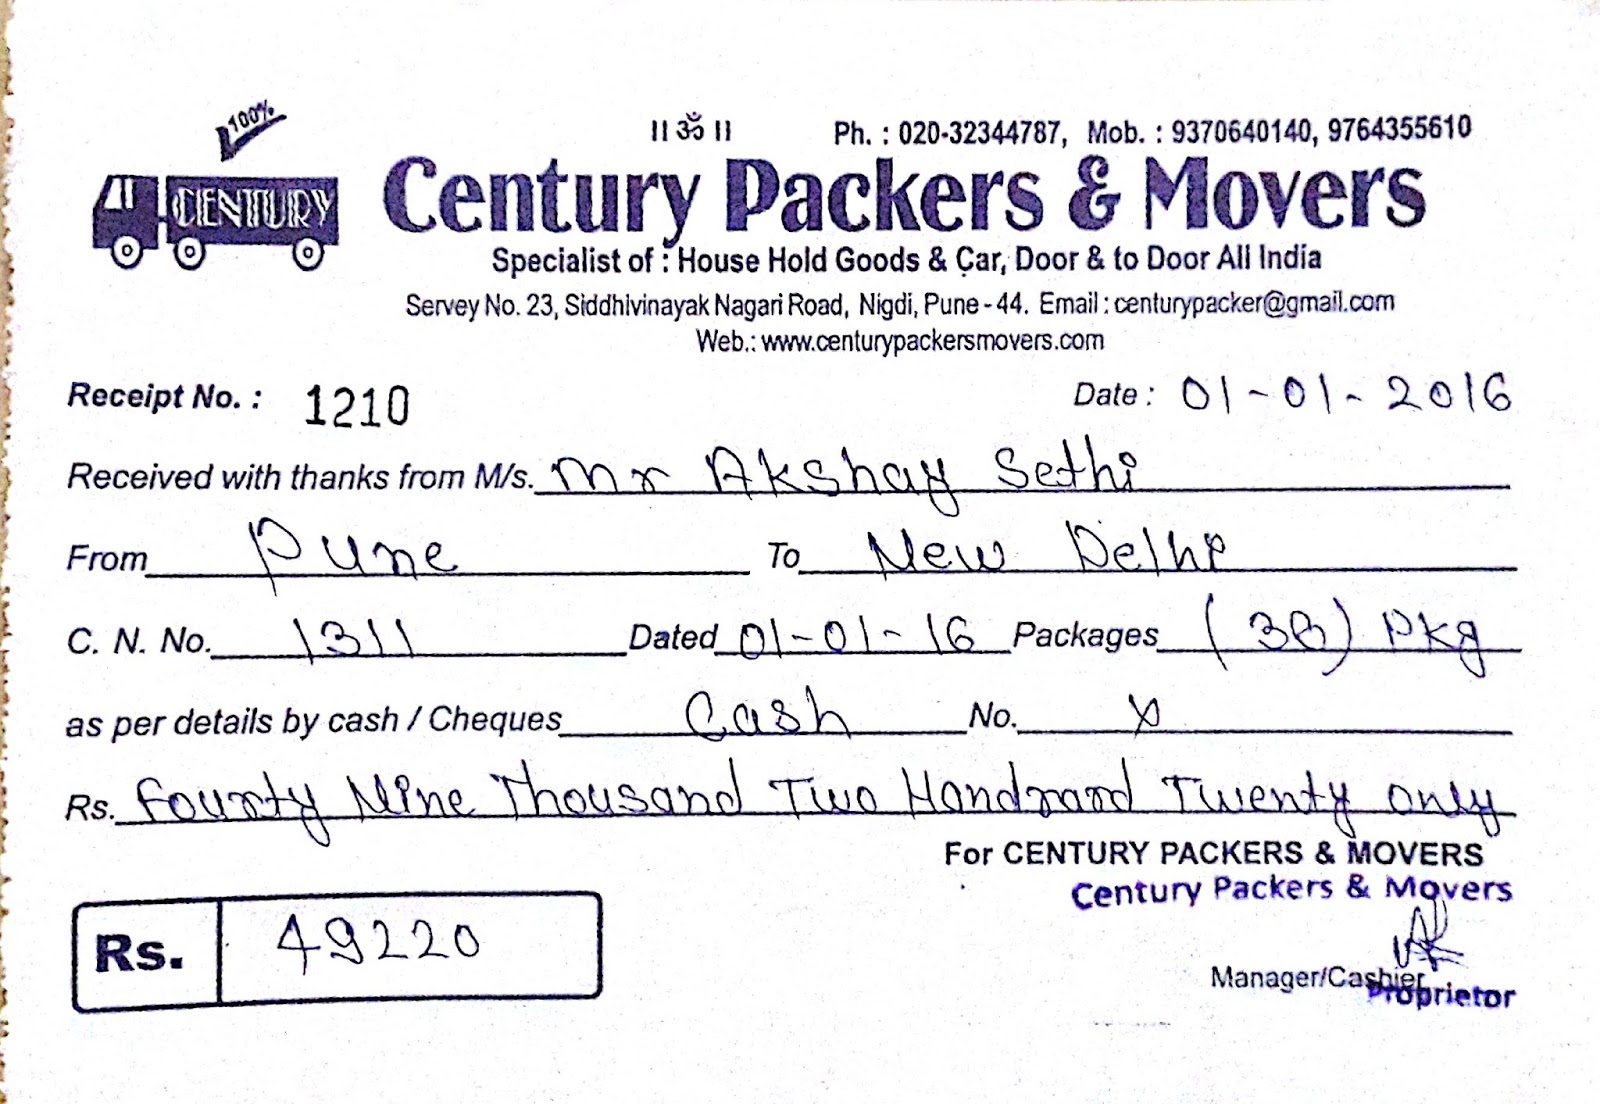 100%
CENTURY
|| ॐ || Ph. : 020-32344787, Mob. : 9370640140, 9764355610
Century Packers & Movers
Specialist of : House Hold Goods & Car, Door & to Door All India
Servey No. 23, Siddhivinayak Nagari Road, Nigdi, Pune - 44. Email : centurypacker@gmail.com
Web.: www.centurypackersmovers.com
Receipt No. : 1210 Date : 01-01-2016
Received with thanks from M/s. Mr Akshay Sethi
From Pune To New Delhi
C. N. No. 1311 Dated 01-01-16 Packages (38) Pkg
as per details by cash / Cheques Cash No. X
Rs. Fourty Nine Thousand Two Handrard Twenty only
For CENTURY PACKERS & MOVERS
Century Packers & Movers
Rs. 49220
Manager/Cashier
Proprietor